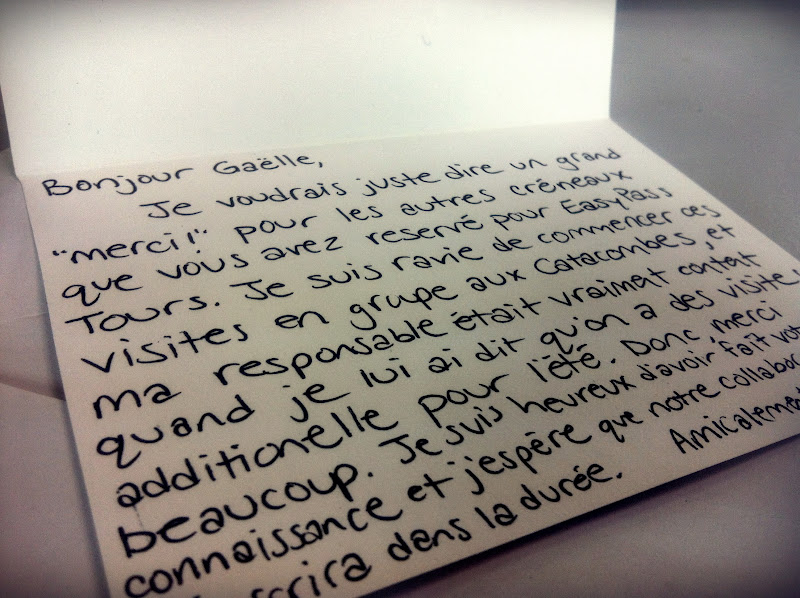 Bonjour Gaëlle,
Je voudrais juste dire un grand
"merci!" pour les autres créneaux
que vous avez reservé pour EasyPass
Tours. Je suis ravie de commencer ces
visites en grupe aux Catacombes, et
ma responsable était vraimat contait
quand je lui ai dit qu'on a des visites
additionelle pour l'été. Donc, merci
beaucoup. Je suis heureux d'avoir fait
connaissance et j'espère que notre
dans la durée. Amicalement